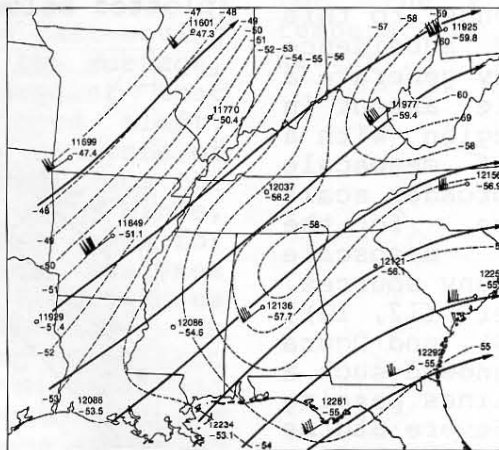 -47
-48
-49
-50
-51
-52
-53
-54
-55
-56
-57
-58
-59
-60
11601
-47.3
11925
-59.8
11770
-50.4
11977
-59.4
-60
-59
-58
11699
-47.4
12037
-56.2
12156
-56.9
-48
11849
-51.1
-58
-49
-50
-51
12121
-58.1
11929
-51.4
12136
-57.7
12086
-54.6
-52
12292
-55
-55
-53
12086
-53.5
12234
-53.1
12261
-55
-54